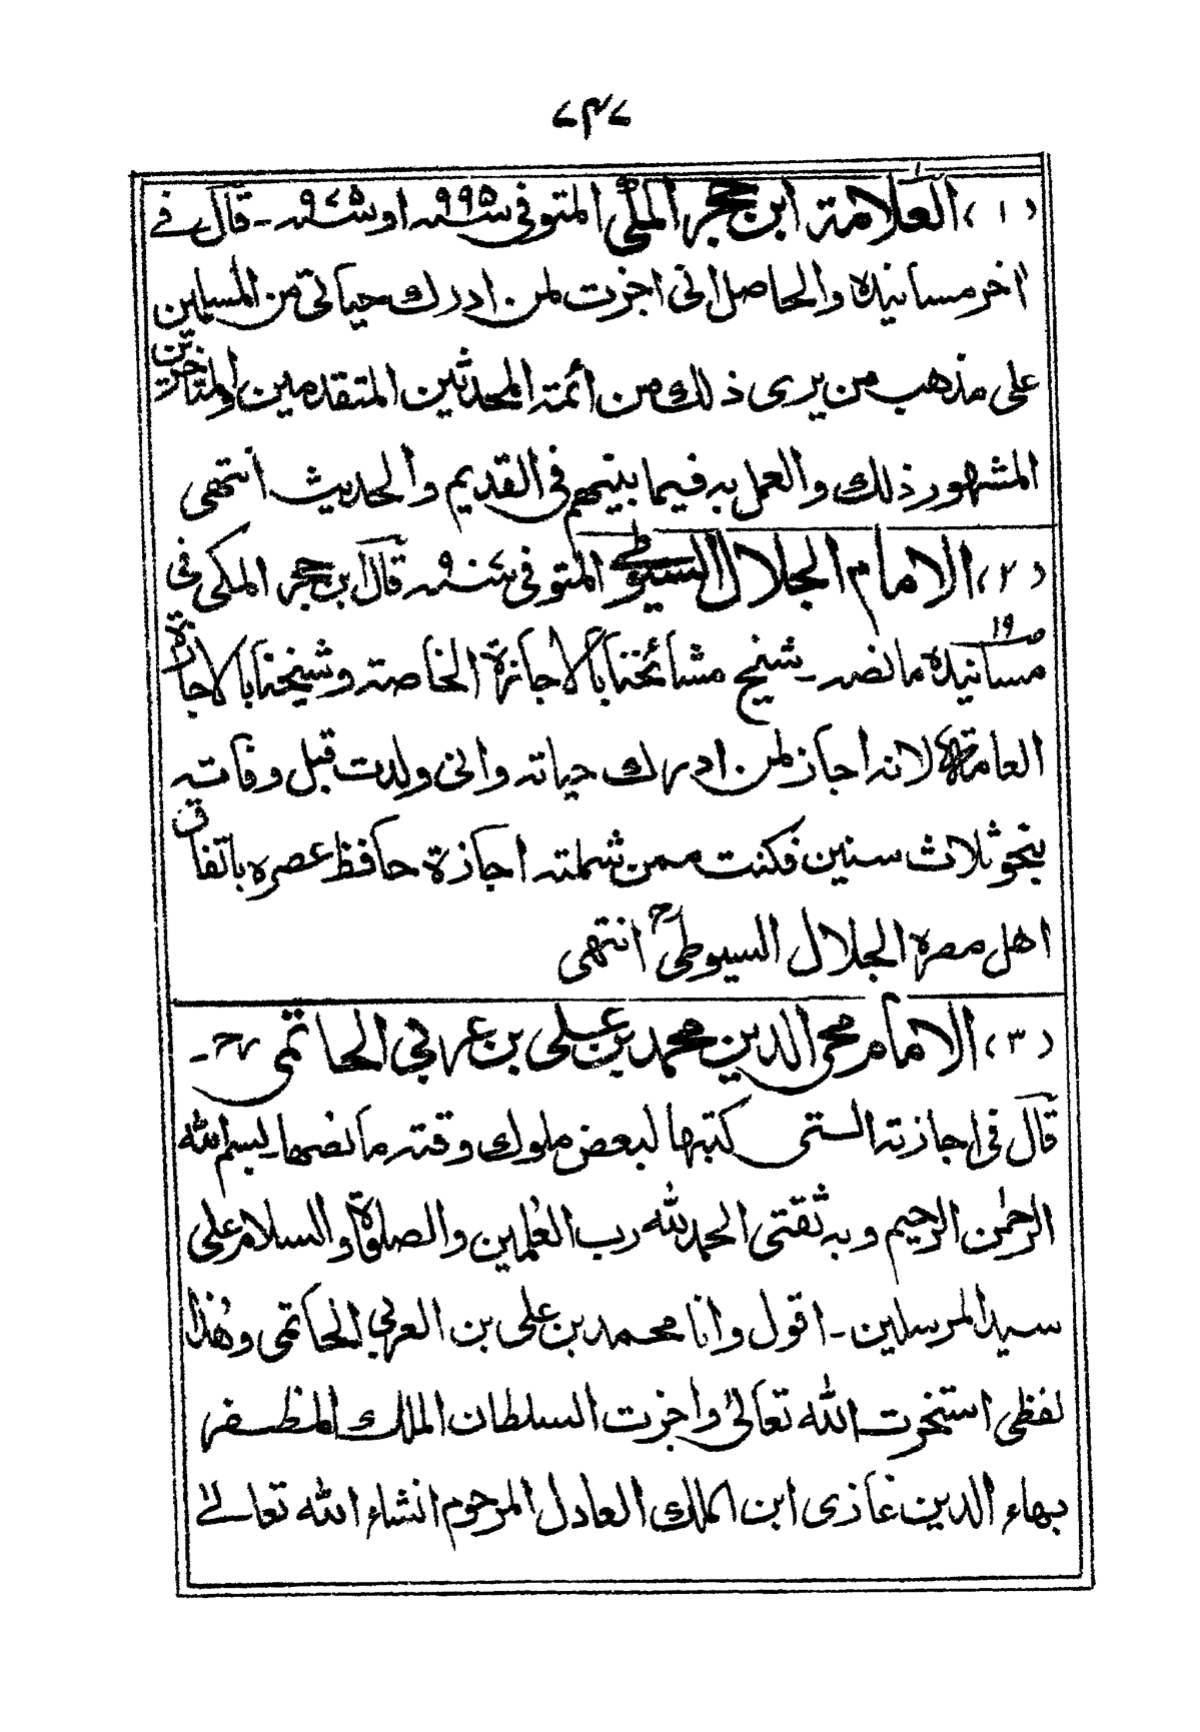 (١) العلامة ابن حجر المكي المتوفى سنه ٩٩٥ او سنه ٩٧٥ - قال في
اخر مسانيده والحاصل انى اجزت لمن ادرك حياتي من المسلمين
على مذهب من يرى ذلك من ائمة المحدثين المتقدمين والمتاخرين
المشهور ذلك والعمل به فيما بينهم في القديم والحديث انتهى
(٢) الامام الجلال السيوطي المتوفى سنه قال ابن حجر المكى فى
مسانيده ص١٩ ما نصه - شيخ مشائخنا بالاجازة الخاصة وشيخنا بالاجازة
العامة لانه اجاز لمن ادرك حياته وانى ولدت قبل وفاته
بنحو ثلاث سنين فكنت ممن شملته اجازة حافظ عصره باتفاق
اهل مصره الجلال السيوطىؒ انتهى
(٣) الامام محى الدين محمد بن على بن عربي الحاتمى رح -
قال في اجازته التى كتبها لبعض ملوك وقته ما نصها - بسم الله
الرحمٰن الرحيم وبه ثقتى الحمد لله رب العٰلمين والصلوة والسلام على
سيد المرسلين - اقول وانا محمد بن على بن العربي الحاتمى وهٰذا
لفظى استخرت الله تعالىٰ واجزت السلطان الملك المظفر
بهاء الدين غازى ابن الملك العادل المرحوم انشاء الله تعالىٰ